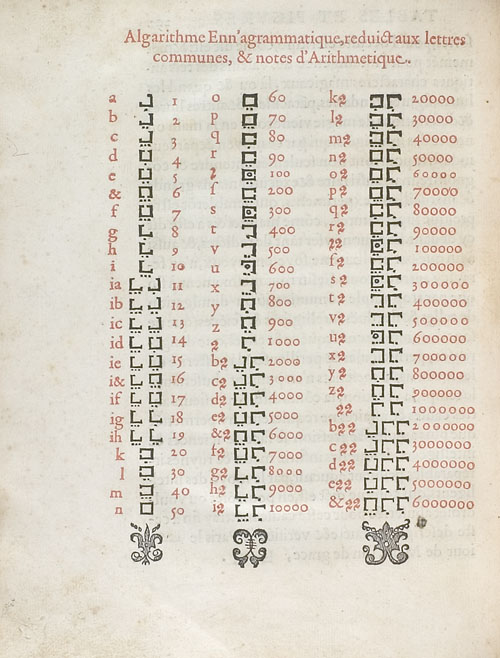 Algarithme Enn'agrammatique, reduict aux lettres
communes, & notes d'Arithmetique.
a 1
b 2
c 3
d 4
e 5
& 6
f 7
g 8
h 9
i 10
ia 11
ib 12
ic 13
id 14
ie 15
i& 16
if 17
ig 18
ih 19
k 20
l 30
m 40
n 50
o 60
p 70
q 80
r 90
100
ſ 200
s 300
t 400
v 500
u 600
x 700
y 800
z 900
2 1000
b2 2000
c2 3000
d2 4000
e2 5000
&2 6000
f2 7000
g2 8000
h2 9000
i2 10000
k2 20000
l2 30000
m2 40000
n2 50000
o2 60000
p2 70000
q2 80000
r2 90000
100000
ſ2 200000
s2 300000
t2 400000
v2 500000
u2 600000
x2 700000
y2 800000
z2 900000
22 1000000
b22 2000000
c22 3000000
d22 4000000
e22 5000000
&22 6000000